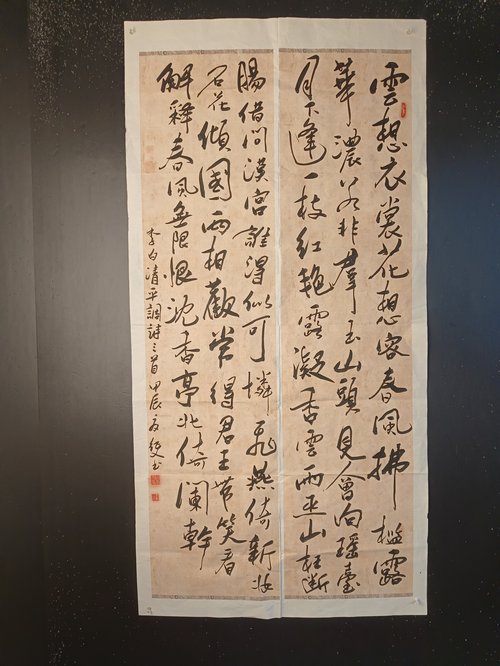 雲想衣裳花想容春風拂檻露
華濃若非羣玉山頭見會向瑶臺
月下逢一枝紅艳露凝香雲雨巫山枉斷
腸借問漢宮誰得似可憐飛燕倚新妝
名花傾國兩相歡常得君王帶笑看
解释春風無限恨沈香亭北倚闌幹
李白清平調詩三首甲辰书